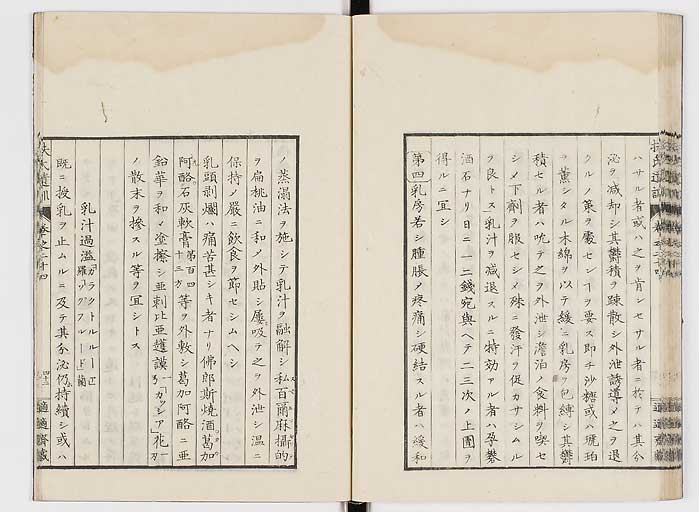 ハサル者或ハ之ヲ肯シセサル者ニ於テハ其分
泌ヲ減却シ其欝積ヲ疎散シ外泄誘導メ之ヲ退
クルノ策ヲ處センヿヲ要ス即チ沙糖或ハ琥珀
ヲ薫シタル木綿ヲ以テ緩ニ乳房ヲ包縛シ其欝
積セル者ハ吮テ之ヲ外泄シ澹泊ノ食料ヲ喫セ
シメ下劑ヲ服セシメ殊ニ發汗ヲ促カサシムル
ヲ良トス乳汁ヲ減退スルニ特効アル者ハ孕礬
酒石ナリ日ニ一二錢宛與ヘテ二三次ノ上圊ヲ
得ルニ宜シ
第四乳房若シ腫脹メ疼痛シ硬結スル者ハ緩和
ノ蒸溻法ヲ施シテ乳汁ヲ融解シ私百爾麻攝的
ヲ扁桃油ニ和メ外貼シ屢吸テ之ヲ外泄シ温ニ
保持メ嚴ニ飲食ヲ節セシムヘシ
乳頭剥爛ハ痛苦甚シキ者ナリ佛郎斯燒酒葛加
阿酪石灰軟膏第百四十三方等ヲ外敷シ葛加阿酪ニ亜
鉛華ヲ和メ塗擦シ亜剌比亜護謨一刄「カッシア」花一刄
ノ散末ヲ摻スル等ヲ宜シトス
乳汁過溢ガラクトルルー羅ミルクフルード蘭
既ニ授乳ヲ止ムルニ及テ其分泌仍持續シ或ハ
扶氏遺訓 卷之二十四
四十三 適適齋藏